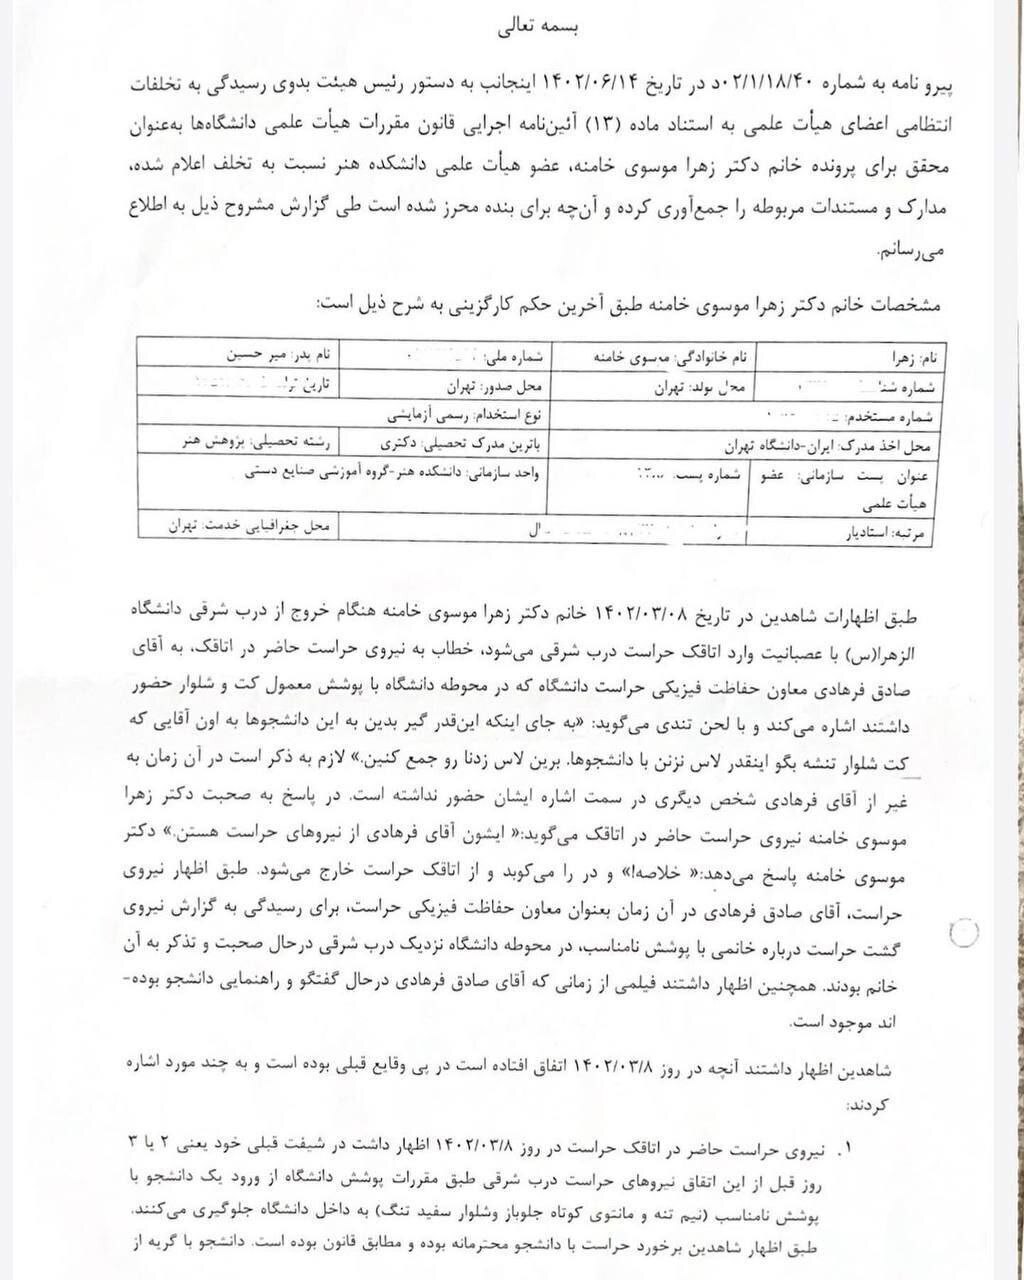 بسمه تعالی
پیرو نامه به شماره ۰۲/۱/۱۸/۴۰د در تاریخ ۱۴۰۲/۰۶/۱۴ اینجانب به دستور رئیس هیئت بدوی رسیدگی به تخلفات
انتظامی اعضای هیأت علمی به استناد ماده (۱۳) آئین‌نامه اجرایی قانون مقررات هیأت علمی دانشگاه‌ها به‌عنوان
محقق برای پرونده خانم دکتر زهرا موسوی خامنه، عضو هیأت علمی دانشکده هنر نسبت به تخلف اعلام شده،
مدارک و مستندات مربوطه را جمع‌آوری کرده و آن‌چه برای بنده محرز شده است طی گزارش مشروح ذیل به اطلاع
می‌رسانم.
مشخصات خانم دکتر زهرا موسوی خامنه طبق آخرین حکم کارگزینی به شرح ذیل است:
نام: زهرا نام خانوادگی: موسوی خامنه شماره ملی: نام پدر: میر حسین
شماره محل تولد: تهران محل صدور: تهران تاریخ
شماره مستخدم: نوع استخدام: رسمی آزمایشی
محل اخذ مدرک: ایران-دانشگاه تهران بالاترین مدرک تحصیلی: دکتری رشته تحصیلی: پژوهش هنر
عنوان پست سازمانی: عضو شماره پست: واحد سازمانی: دانشکده هنر-گروه آموزشی صنایع دستی
هیأت علمی
مرتبه: استادیار محل جغرافیایی خدمت: تهران
طبق اظهارات شاهدین در تاریخ ۱۴۰۲/۰۳/۰۸ خانم دکتر زهرا موسوی خامنه هنگام خروج از درب شرقی دانشگاه
الزهرا(س) با عصبانیت وارد اتاقک حراست درب شرقی می‌شود، خطاب به نیروی حراست حاضر در اتاقک، به آقای
صادق فرهادی معاون حفاظت فیزیکی حراست دانشگاه که در محوطه دانشگاه با پوشش معمول کت و شلوار حضور
داشتند اشاره می‌کند و با لحن تندی می‌گوید: «به جای اینکه این‌قدر گیر بدین به این دانشجوها به اون آقایی که
کت شلوار تنشه بگو اینقدر لاس نزنن با دانشجوها. برین لاس زدنا رو جمع کنین.» لازم به ذکر است در آن زمان به
غیر از آقای فرهادی شخص دیگری در سمت اشاره ایشان حضور نداشته است. در پاسخ به صحبت دکتر زهرا
موسوی خامنه نیروی حراست حاضر در اتاقک می‌گوید:« ایشون آقای فرهادی از نیروهای حراست هستن.» دکتر
موسوی خامنه پاسخ می‌دهد:« خلاصه!» و در را می‌کوبد و از اتاقک حراست خارج می‌شود. طبق اظهار نیروی
حراست، آقای صادق فرهادی در آن زمان بعنوان معاون حفاظت فیزیکی حراست، برای رسیدگی به گزارش نیروی
گشت حراست درباره خانمی با پوشش نامناسب، در محوطه دانشگاه نزدیک درب شرقی درحال صحبت و تذکر به آن
خانم بودند. همچنین اظهار داشتند فیلمی از زمانی که آقای صادق فرهادی درحال گفتگو و راهنمایی دانشجو بوده-
اند موجود است.
شاهدین اظهار داشتند آنچه در روز ۱۴۰۲/۰۳/۸ اتفاق افتاده است در پی وقایع قبلی بوده است و به چند مورد اشاره
کردند:
۱. نیروی حراست حاضر در اتاقک حراست در روز ۱۴۰۲/۰۳/۸ اظهار داشت در شیفت قبلی خود یعنی ۲ یا ۳
روز قبل از این اتفاق نیروهای حراست درب شرقی طبق مقررات پوشش دانشگاه از ورود یک دانشجو با
پوشش نامناسب (نیم تنه و مانتوی کوتاه جلوباز وشلوار سفید تنگ) به داخل دانشگاه جلوگیری می‌کنند.
طبق اظهار شاهدین برخورد حراست با دانشجو محترمانه بوده و مطابق قانون بوده است. دانشجو با گریه از